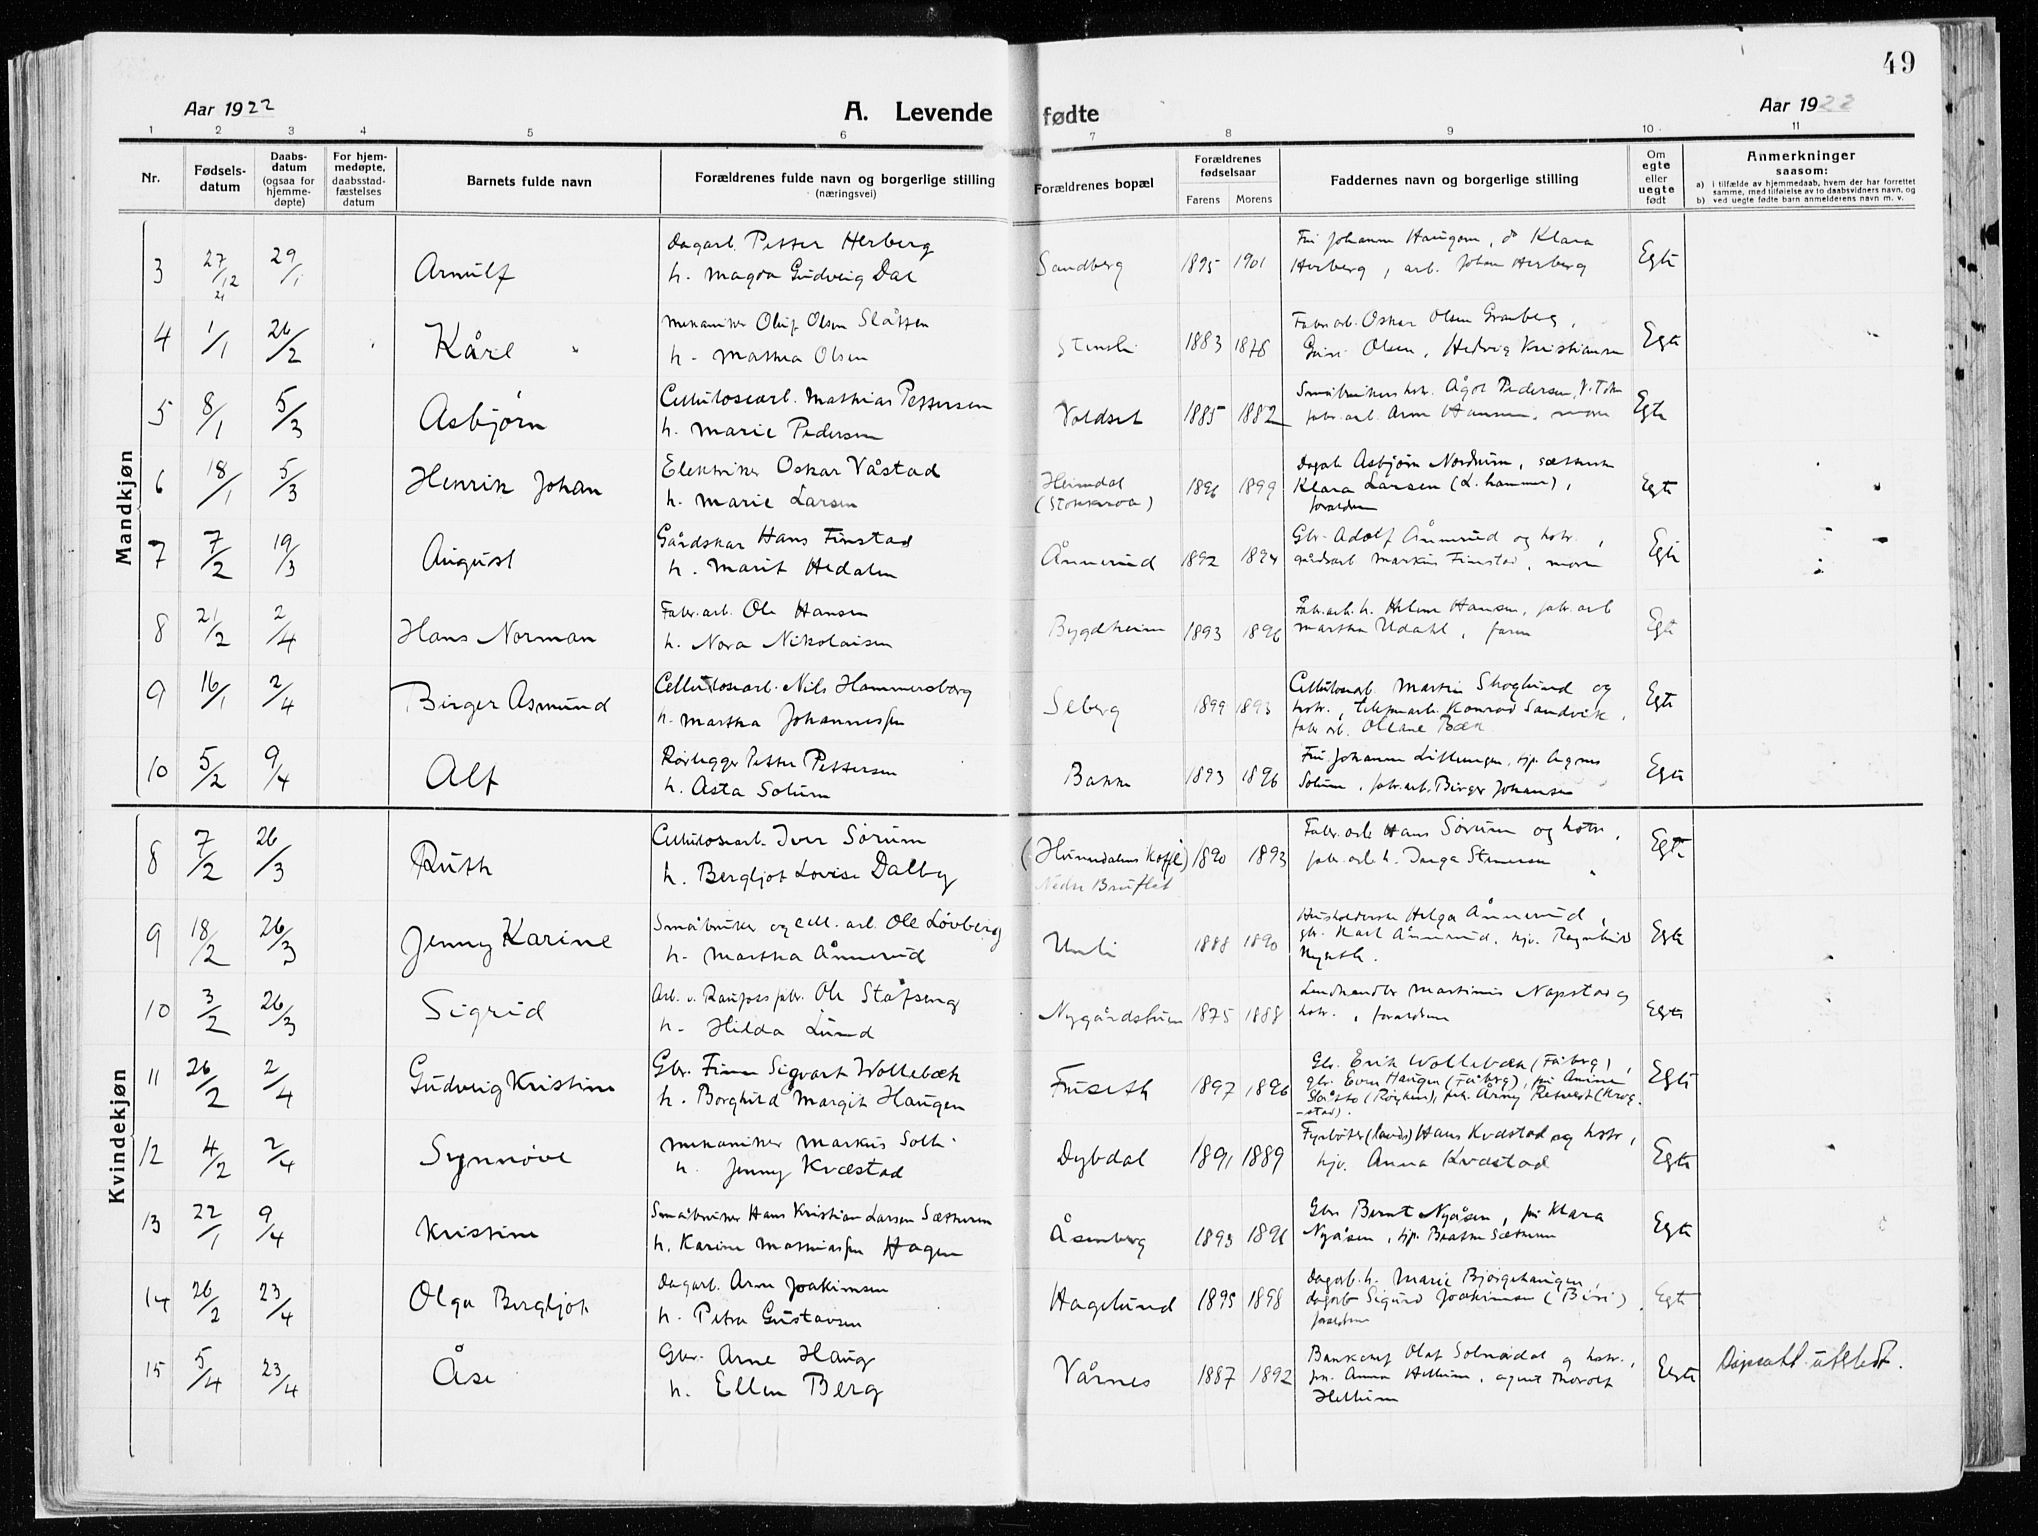 49
Aar 1922
A. Levende fødte
Aar 1922
1 2 3 4 5 6 7 8 9 10 11
Nr.
Fødsels-
datum
Daabs-
datum
(ogsaa for
hjemme-
døpte)
For hjem-
medøpte,
daabsstad-
fæstelses
datum
Barnets fulde navn
Forældrenes fulde navn og borgerlige stilling
(næringsvei)
Forældrenes bopæl
Forældrenes
fødselsaar
Farens Morens
Faddernes navn og borgerlige stilling
Om
egte
eller
uegte
født
Anmerkninger
saasom:
a) i tilfælde av hjemmedaab, hvem der har forrettet
samme, med tilføielse av to daabsvidners navn, og
b) ved uegte fødte barn anmelderens navn m. v.
Mandkjøn
3 27/12 21 29/1 Arnulf
Dagarb. Petter Herberg
h. Magda Gudveig Dal
Sandberg 1895 1901
Fru Johanne Haugom, do Klara
Herberg, arb. Johan Herberg
Egte
4 1/1 26/2 Kåre
Mekaniker Oluf Olsen Slåtten
h. Mathea Olsen
Stenli 1883 1878
Fabr.arb. Oskar Olsen Granberg,
Olsen, Hedvig Kristiansen
Egte
5 8/1 5/3 Asbjørn
Cellulosearb. Mathias Pettersen
h. Marie Pedersen
Voldset 1885 1882
Småbrukers hstr. Ågot Pedersen,
fabr.arb. Arne Hansen, moren
Egte
6 18/1 5/3 Henrik Johan
Elektriker Oskar Våstad
h. Marie Larsen
Heimdal
(Stokkeroa)
1896 1899
Dagarb. Asbjørn Nordrum,
Klara Larsen (L. hammer),
forældrene
Egte
7 7/2 19/3 August
Gårdskar Hans Finstad
h. Marit Hedalen
Ånnerud 1892 1894
Gbr. Adolf Ånnerud og hstr.,
gårdsarb Markus Finstad, moren
Egte
8 21/2 2/4 Hans Norman
Fabr.arb. Ole Hansen
h. Nora Nikolaisen
Bygdheim 1893 1896
Fabr.arb. h. Helene Hansen, fabr.arb
Martha Udahl, faren
Egte
9 16/1 2/4 Birger Asmund
Cellulosearb. Nils Hammersberg
h. Martha Johannesen
Seberg 1899 1893
Cellulosearb. Martin Skoglund og
hstr., Konrad Sandvik,
fabr.arb. Oleane Bæk
Egte
10 5/2 9/4 Alf
Rørlegger Petter Pettersen
h. Asta Solum
Bakke 1893 1896
Fru Johanne Lillengen, tjp. Agnes
Solum, fabr.arb. Birger Johansen
Egte
Kvindekjøn
8 7/2 26/3 Ruth
Cellulosearb. Iver Sørum
h. Bergljot Lovise Dalby
(Hunndalens Kaffe)
Nedre Bruflat
1890 1893
Fabr.arb Hans Sørum og hstr.,
fabr.arb. h. Inga Stenersen
Egte
9 18/2 26/3 Jenny Karine
Småbruker og cell. arb. Ole Løvberg
h. Martha Ånnerud
Unli 1888 1890
Husholderske Helga Ånnerud,
gbr. Karl Ånnerud, hjv. Ragnhild
Nyseth.
Egte
10 3/2 26/3 Sigrid
Arb. v. Raufoss fabr. Ole Stafseng
h. Hilda Lund
Nygårdstuen 1875 1888
Landhandler Martinius Napstad og
hstr., forældrene
Egte
11 26/2 2/4 Gudveig Kristine
Gbr. Finn Sigvart Wollebæk
h. Borghild Margit Haugen
Fuseth 1897 1896
Gbr. Erik Wollebæk (Fåberg),
gbr. Even Haugen (Fåberg), fru Anine
frk. Årny (Krog-
-stad).
Egte
12 4/2 2/4 Synnøve
Mekaniker Markus Solli
h. Jenny Kvæstad
Dybdal 1891 1889
Fyrbøter (Lands) Hans Kvæstad og hstr.,
hjv. Anna Kvæstad
Egte
13 22/1 9/4 Kristine
Småbruker Hans Kristian Larsen Sætteren
h. Karine Mathiassen Hagen
Åsenberg 1893 1896
Gbr. Bernt Nyåsen, fru Klara
Nyåsen, tjp. Beathe Sætteren
Egte
14 26/2 23/4 Olga Bergljot
Dagarb. Arne Joakimsen
h. Petra Gustavsen
Hagelund 1895 1898
Dagarb. h. Marie Bjørgehaugen,
dagarb Sigurd Joakimsen (Biri),
forældrene
Egte
15 5/4 23/4 Åse
Gbr. Arne Haug
h. Ellen Berg
Vårnes 1887 1892
Olaf Solnørdal og hstr.,
frk. Anna Hellum, agent Thorolf
Hellum
Egte
Dåpsatt. utstedt.